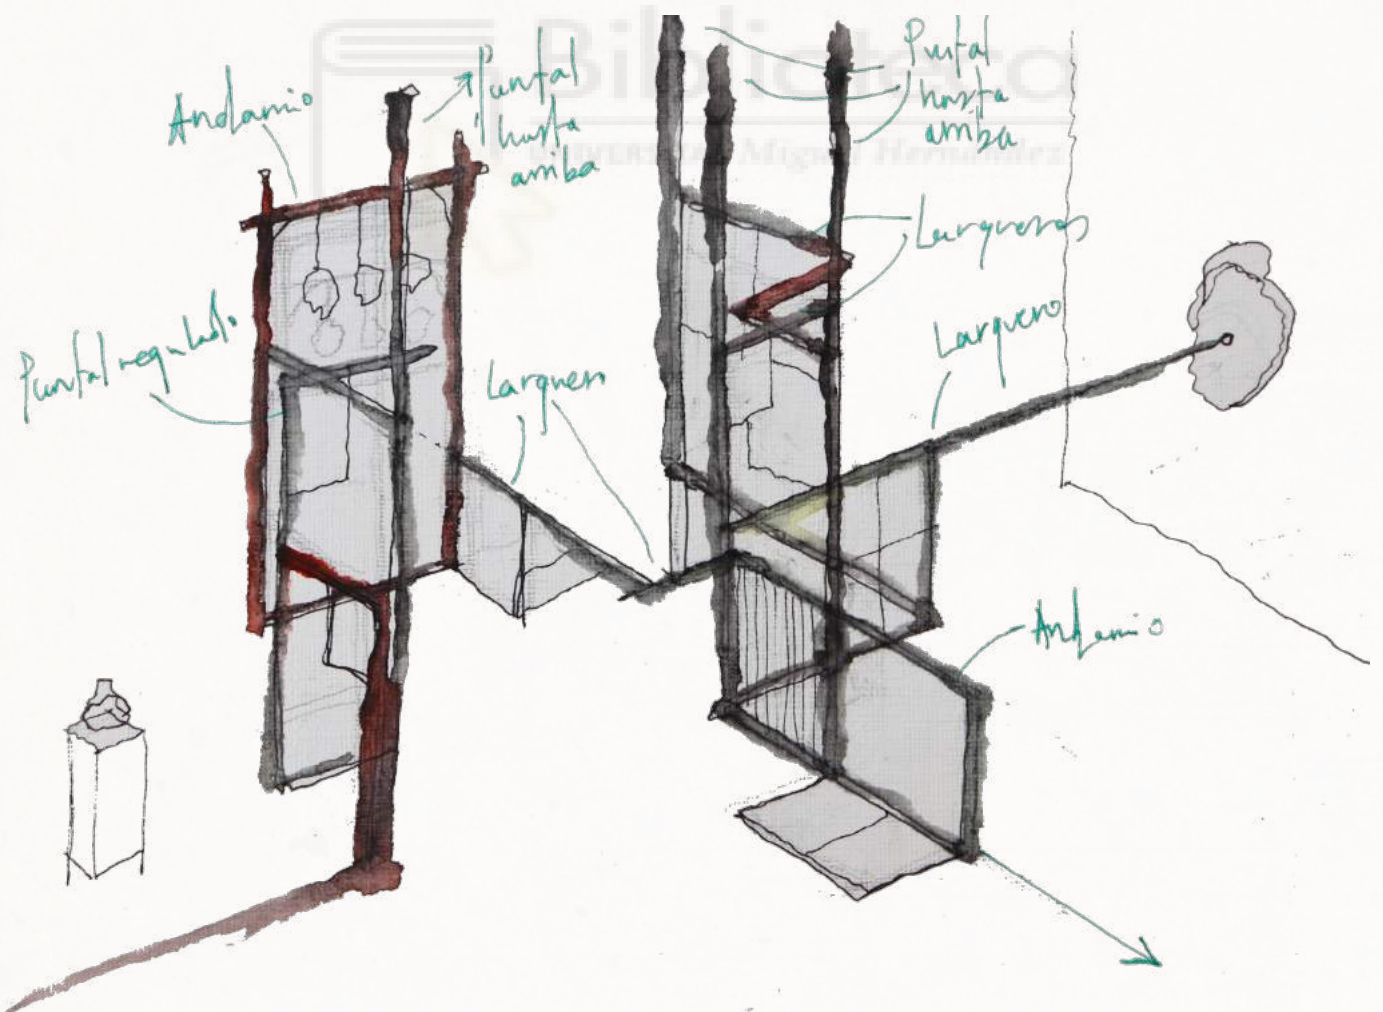 Biblioteca
UNIVERSITAS Miguel Hernández
Andamio
Puntal
hasta
arriba
Puntal
hasta
arriba
Largueros
Puntal regulado
Larguero
Larguero
Andamio